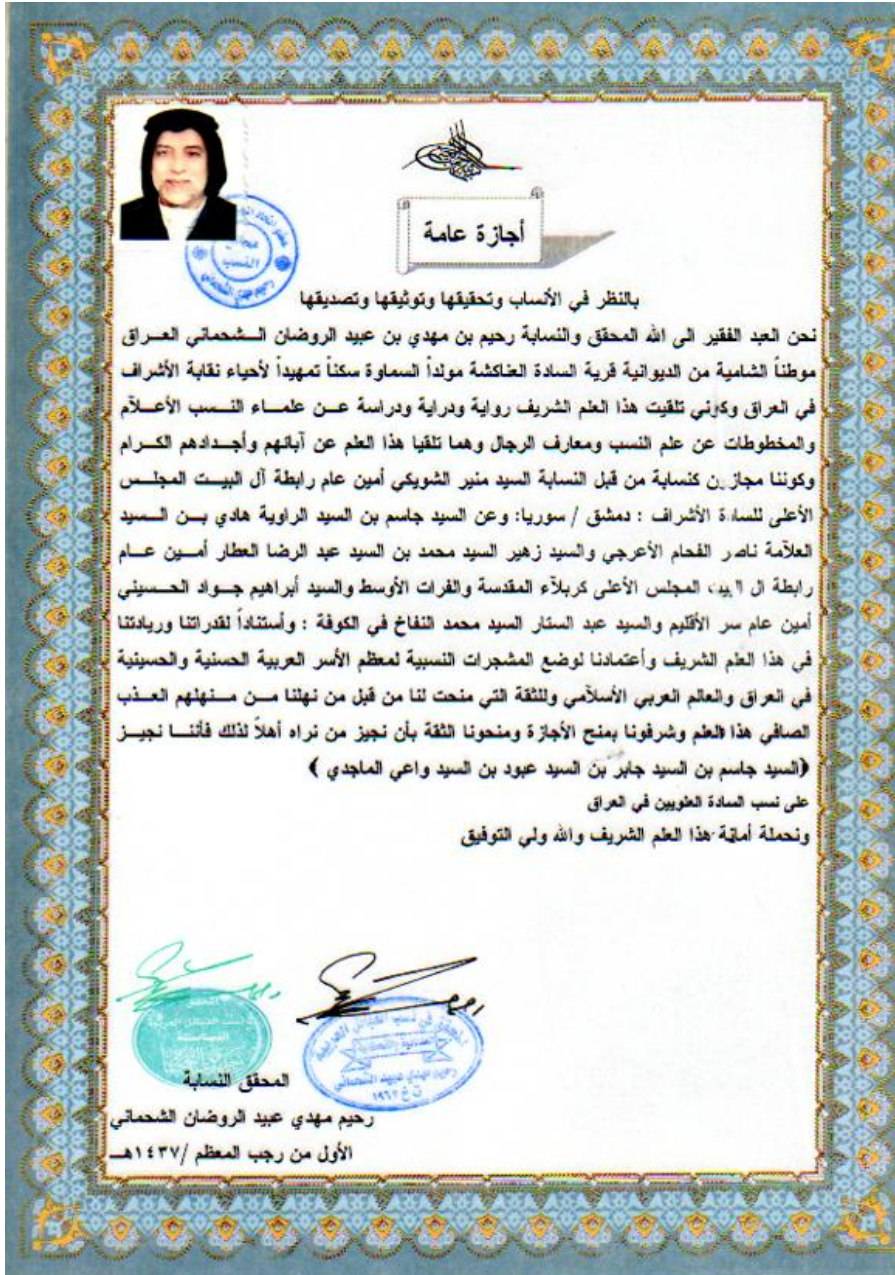 أجازة عامة
بالنظر في الأنساب وتحقيقها وتوثيقها وتصديقها
نحن العبد الفقير الى الله المحقق والنسابة رحيم بن مهدي بن عبيد الروضان الشحماني العراق
موطناً الشامية من الديوانية قرية السادة العناكشة مولداً السماوة سكناً تمهيداً لأحياء نقابة الأشراف
في العراق وكوني تلقيت هذا العلم الشريف رواية ودراية ودراسة عن علماء النسب الأعلآم
والمخطوطات عن علم النسب ومعارف الرجال وهما تلقيا هذا العلم عن آبائهم وأجدادهم الكرام
وكوننا مجازين كنسابة من قبل النسابة السيد منير الشويكي أمين عام رابطة آل البيت المجلس
الأعلى للسادة الأشراف : دمشق / سوريا: وعن السيد جاسم بن السيد الراوية هادي بن السيد
العلآمة ناصر الفحام الأعرجي والسيد زهير السيد محمد بن السيد عبد الرضا العطار أمين عام
رابطة ال البيت المجلس الأعلى كربلآء المقدسة والفرات الأوسط والسيد أبراهيم جواد الحسيني
أمين عام سر الأقليم والسيد عبد الستار السيد محمد النفاخ في الكوفة : وأستناداً لقدراتنا وريادتنا
في هذا العلم الشريف وأعتمادنا لوضع المشجرات النسبية لمعظم الأسر العربية الحسنية والحسينية
في العراق والعالم العربي الأسلآمي وللثقة التي منحت لنا من قبل من نهلنا من منهلهم العذب
الصافي هذا العلم وشرفونا بمنح الأجازة ومنحونا الثقة بأن نجيز من نراه أهلاً لذلك فأننا نجيز
(السيد جاسم بن السيد جابر بن السيد عبود بن السيد واعي الماجدي )
على نسب السادة العلويين في العراق
ونحملة أمانة هذا العلم الشريف والله ولي التوفيق
المحقق النسابة
رحيم مهدي عبيد الروضان الشحماني
الأول من رجب المعظم /١٤٣٧هـ